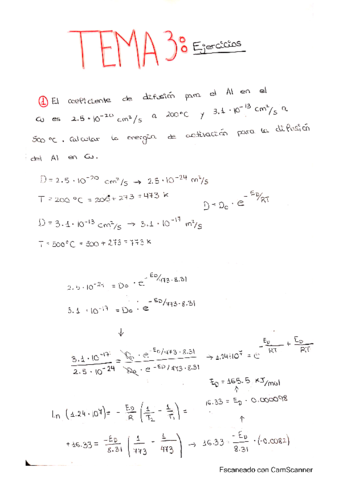 TEMA 3: Ejercicios
① El coeficiente de difusión para el Al en el
Cu es 2.5·10⁻²⁰ cm²/s a 200ºC y 3.1·10⁻¹³ cm²/s a
500 ºC. Calcular la energía de activación para la difusión
del Al en Cu.
D = 2.5·10⁻²⁰ cm²/s → 2.5·10⁻²⁴ m²/s
T = 200 ºC = 200 + 273 = 473 K
D = D₀ · e^(-E_D/RT)
D = 3.1·10⁻¹³ cm²/s → 3.1·10⁻¹⁷ m²/s
T = 500ºC = 500 + 273 = 773 K
2.5·10⁻²⁴ = D₀ · e^(-E_D/473·8.31)
3.1·10⁻¹⁷ = D₀ · e^(-E_D/773·8.31)
↓
3.1·10⁻¹⁷ / 2.5·10⁻²⁴ = D₀ · e^(-E_D/773·8.31) / D₀ · e^(-E_D/473·8.31) → 1.24·10⁷ = e^(-E_D/RT + E_D/RT)
E_D = 165.5 KJ/mol
↑
16.33 = E_D · 0.000098
↑
ln (1.24·10⁷) = - E_D/R (1/T₂ - 1/T₁)
+16.33 = -E_D/8.31 (1/773 - 1/473) → 16.33 = -E_D/8.31 · (-0.0082)
Escaneado con CamScanner